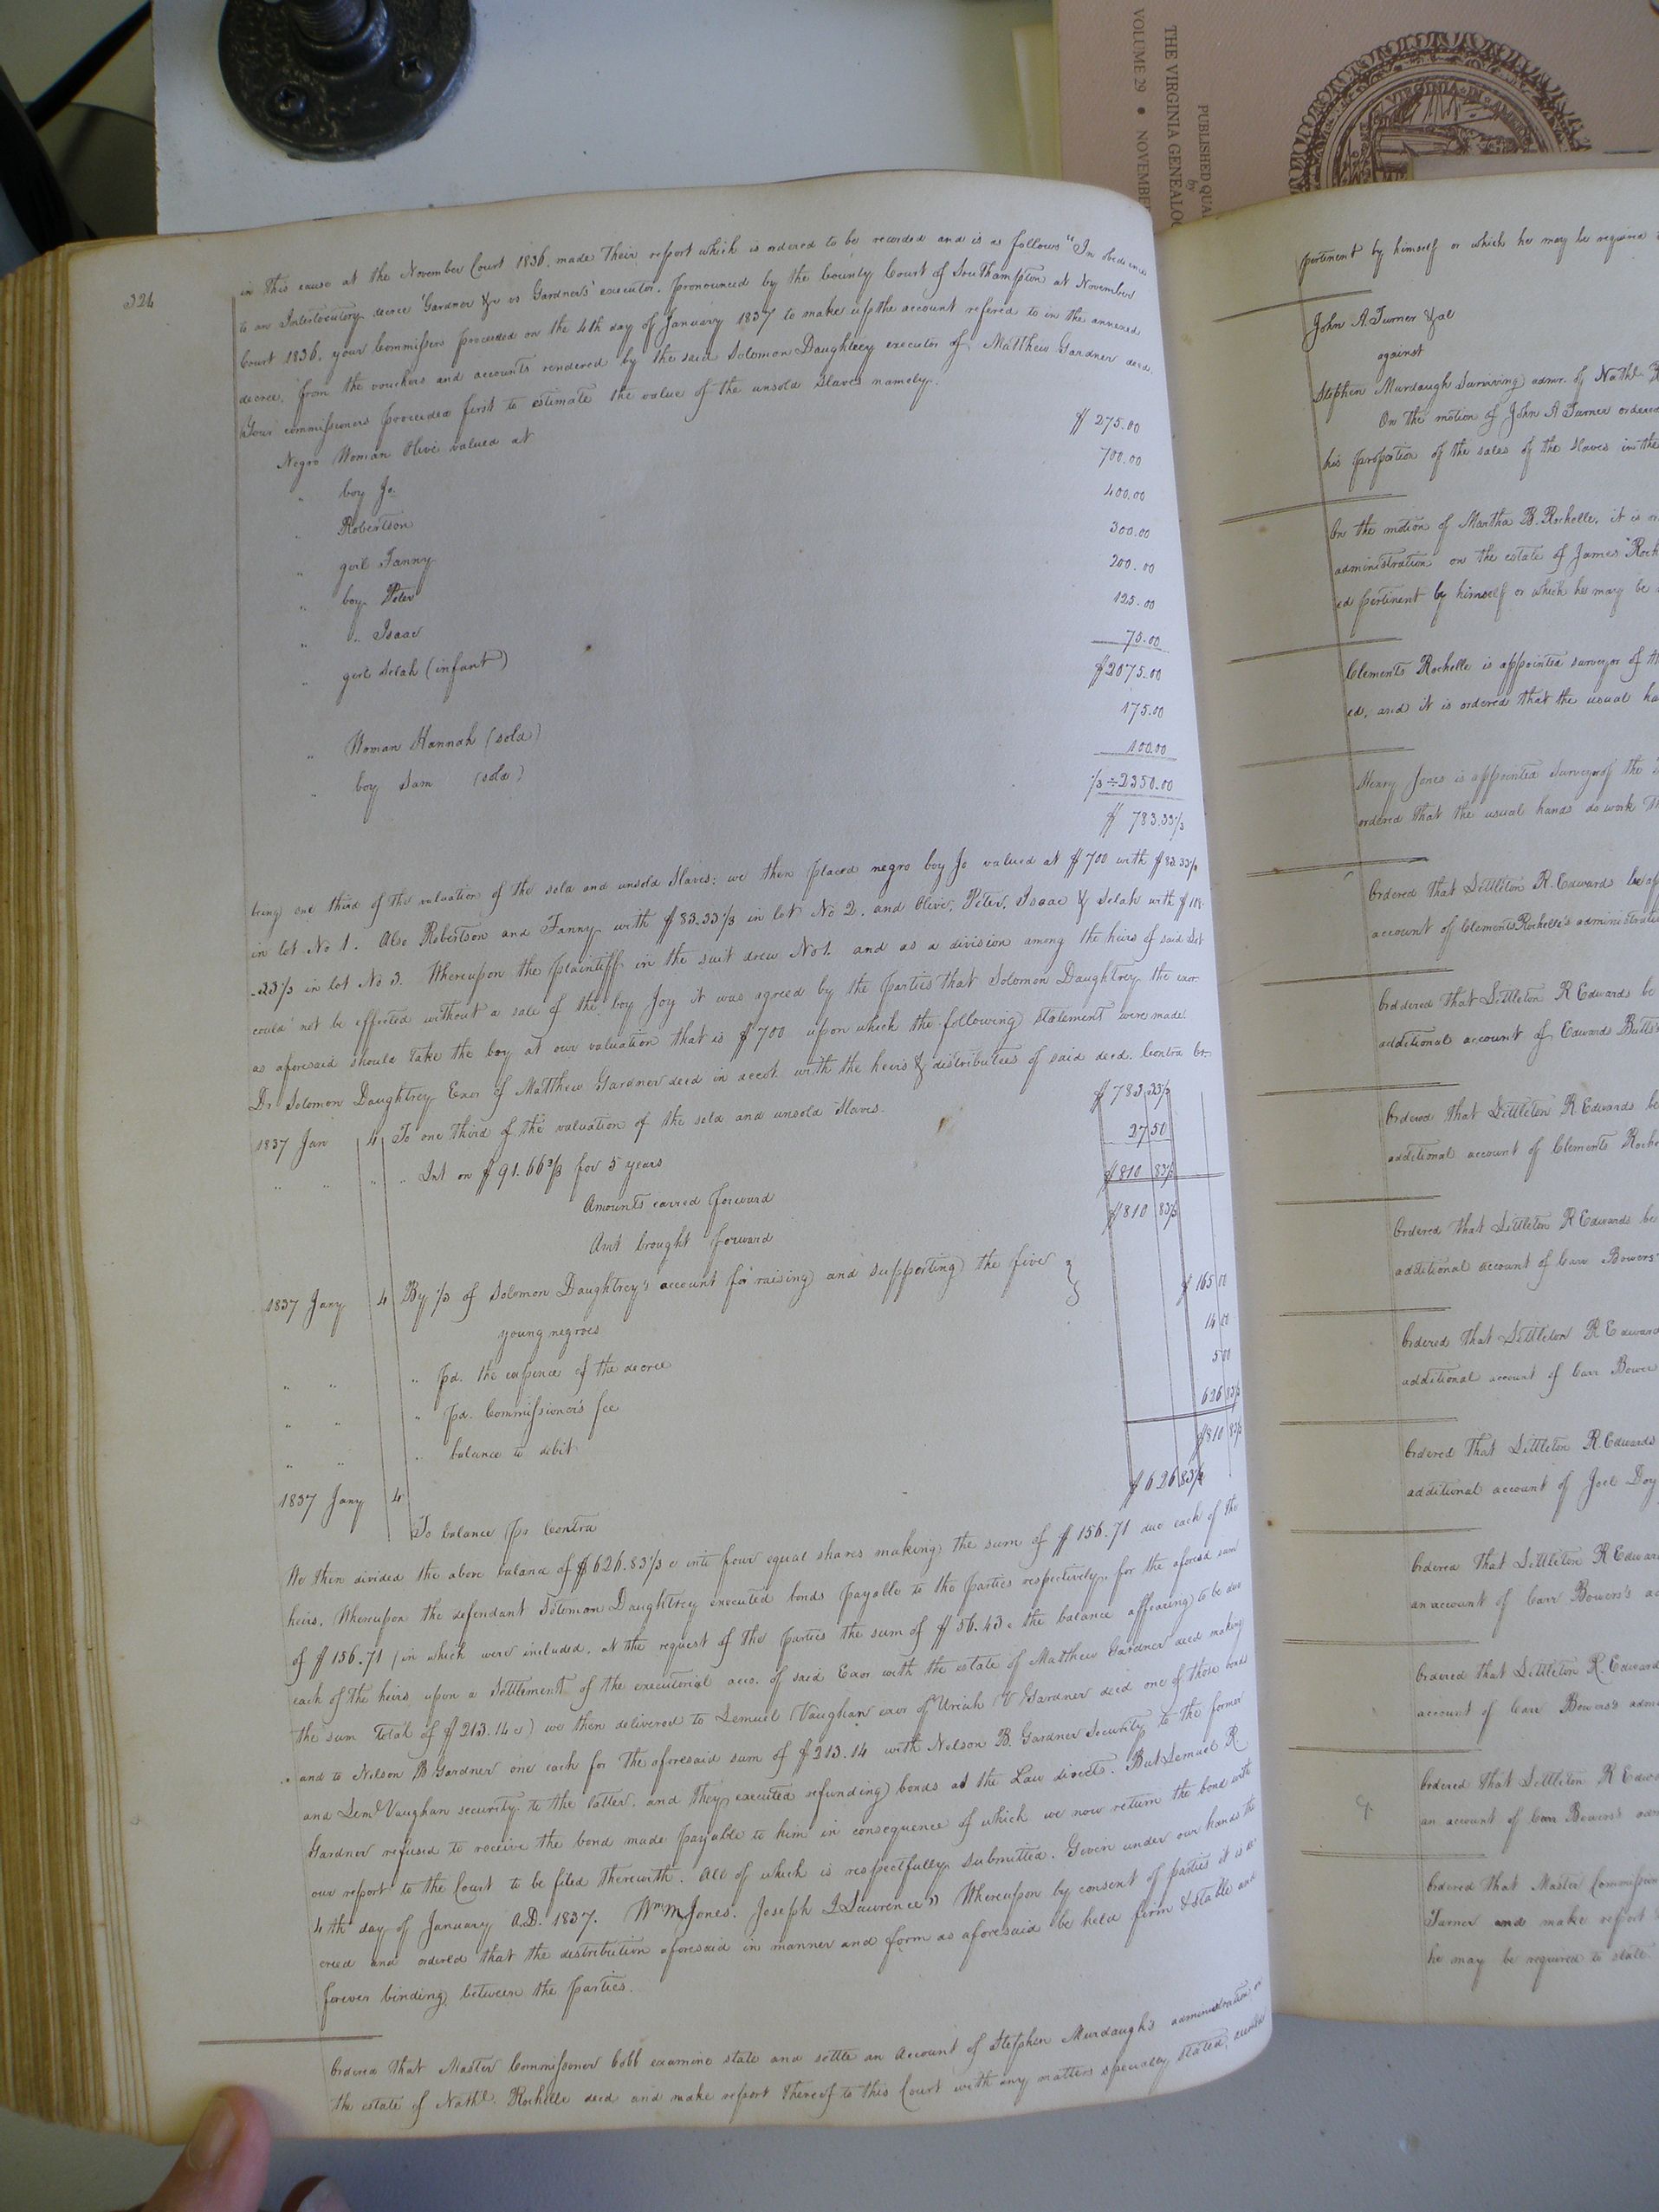 THE VIRGINIA GENEALO
VOLUME 29 • NOVEMBE
PUBLISHED QUA
by
VIRGINIA IN
324
in this cause at the November Court 1836. made their report which is ordered to be recorded and is as follows "In obedience
to an Interlocutory decree Gardner &c vs Gardner's executor. pronounced by the County Court of Southampton at November
Court 1836. your Commissioners proceeded on the 4th day of January 1837 to make up the account refered to in the annexed
decree, from the vouchers and accounts rendered by the said Solomon Daughtrey executor of Matthew Gardner decd.
Your commissioners proceeded first to estimate the value of the unsold slaves namely.
Negro Woman Olive valued at $ 275.00
" boy Jo. 700.00
" Robertson 400.00
" girl Fanny 300.00
" boy Peter 200.00
" " Isaac 125.00
" girl Selah (infant) 75.00
$2075.00
" Woman Hannah (sold) 175.00
" boy Sam (sold) 100.00
1/3 ÷ 2350.00
$ 783.33 1/3
being one third of the valuation of the sold and unsold slaves: we then placed negro boy Jo valued at $700 with $83.33 1/3
in lot No 1. Also Robertson and Fanny with $83.33 1/3 in lot No 2. and Olive, Peter, Isaac & Selah with $108
.33 1/3 in lot No 3. Whereupon the plaintiff in the suit drew No 1. and as a division among the heirs of said Lot
could not be effected without a sale of the boy Joy it was agreed by the parties that Solomon Daughtrey the exor
as aforesaid should take the boy at our valuation that is $700 upon which the following statement were made
Dr Solomon Daughtrey Exor of Matthew Gardner decd in acct. with the heirs & distributees of said decd. Contra Cr.
1837 Jan 4 To one third of the valuation of the sold and unsold slaves. $783 33 1/3
" " " " Int on $91.66 2/3 for 5 years 27 50
Amounts carred forward $810 83 1/3
Amt brought forward $810 83 1/3
1837 Jany 4 By 1/3 of Solomon Daughtrey's account for raising and supporting the five }
young negroes $165 00
" " " pd. the expence of the decree 14 00
" " " pd. Commissioner's fee 5 00
" " " balance to debit 626 83 1/3
$810 83 1/3
1837 Jany 4 To balance pr Contra $626 83 1/3
We then divided the above balance of $626.83 1/3 c into four equal shares making the sum of $156.71 due each of the
heirs. Whereupon the defendant Solomon Daughtrey executed bonds payable to the parties respectively for the aforesd sum
of $156.71 (in which were included, at the request of the parties the sum of $56.43 c the balance appearing to be due
each of the heirs upon a settlement of the executorial acco. of said Exor with the estate of Matthew Gardner decd making
the sum total of $213.14 c) we then delivered to Lemuel Vaughan exor of Uriah V Gardner decd one of those bonds
and to Nelson B Gardner one each for the aforesaid sum of $213.14 with Nelson B. Gardner Security to the former
and Leml Vaughan security to the latter. and they executed refunding bonds as the Law directs. But Lemuel R
Gardner refused to receive the bond made payable to him in consequence of which we now return the bond with
our report to the Court to be filed therewith. All of which is respectfully submitted. Given under our hands the
4th day of January A.D. 1837. Wm M Jones. Joseph J Lawrence" Whereupon by consent of parties it is de
creed and ordered that the distribution aforesaid in manner and form as aforesaid be held firm & stable and
forever binding between the parties.
Ordered that Master Commissioner Cobb examine state and settle an Account of Stephen Murdaugh's administration of
the estate of Nathl. Rochelle decd and make report thereof to this Court with any matters specially stated,
pertinent by himself or which he may be required
John A. Turner &al
against
Stephen Murdaugh surviving admr. of Nathl R
On the motion of John A Turner ordered
his proportion of the sales of the slaves in the
On the motion of Martha B. Rochelle, it is or
administration on the estate of James Roch
ed pertinent by himself or which he may be
Clements Rochelle is appointed surveyor of th
ed, and it is ordered that the usual ha
Henry Jones is appointed Surveyor of the
ordered that the usual hands do work th
Ordered that Littleton R. Edwards be ap
account of Clements Rochelle's administrati
Ordered that Littleton R Edwards be
additional account of Edward Butts's
Ordered that Littleton R. Edwards be
additional account of Clements Roche
Ordered that Littleton R Edwards be
additional account of Carr Bowers
Ordered that Littleton R Edward
additional account of Carr Bower
Ordered that Littleton R. Edwards
additional account of Joel Doy
Ordered that Littleton R Edwar
an account of Carr Bowers's ad
Ordered that Littleton R. Edward
account of Carr Bowers's admi
Ordered that Littleton R Edwa
an account of Carr Bowers's adm
Ordered that Master Commission
Turner and make report
he may be required to state